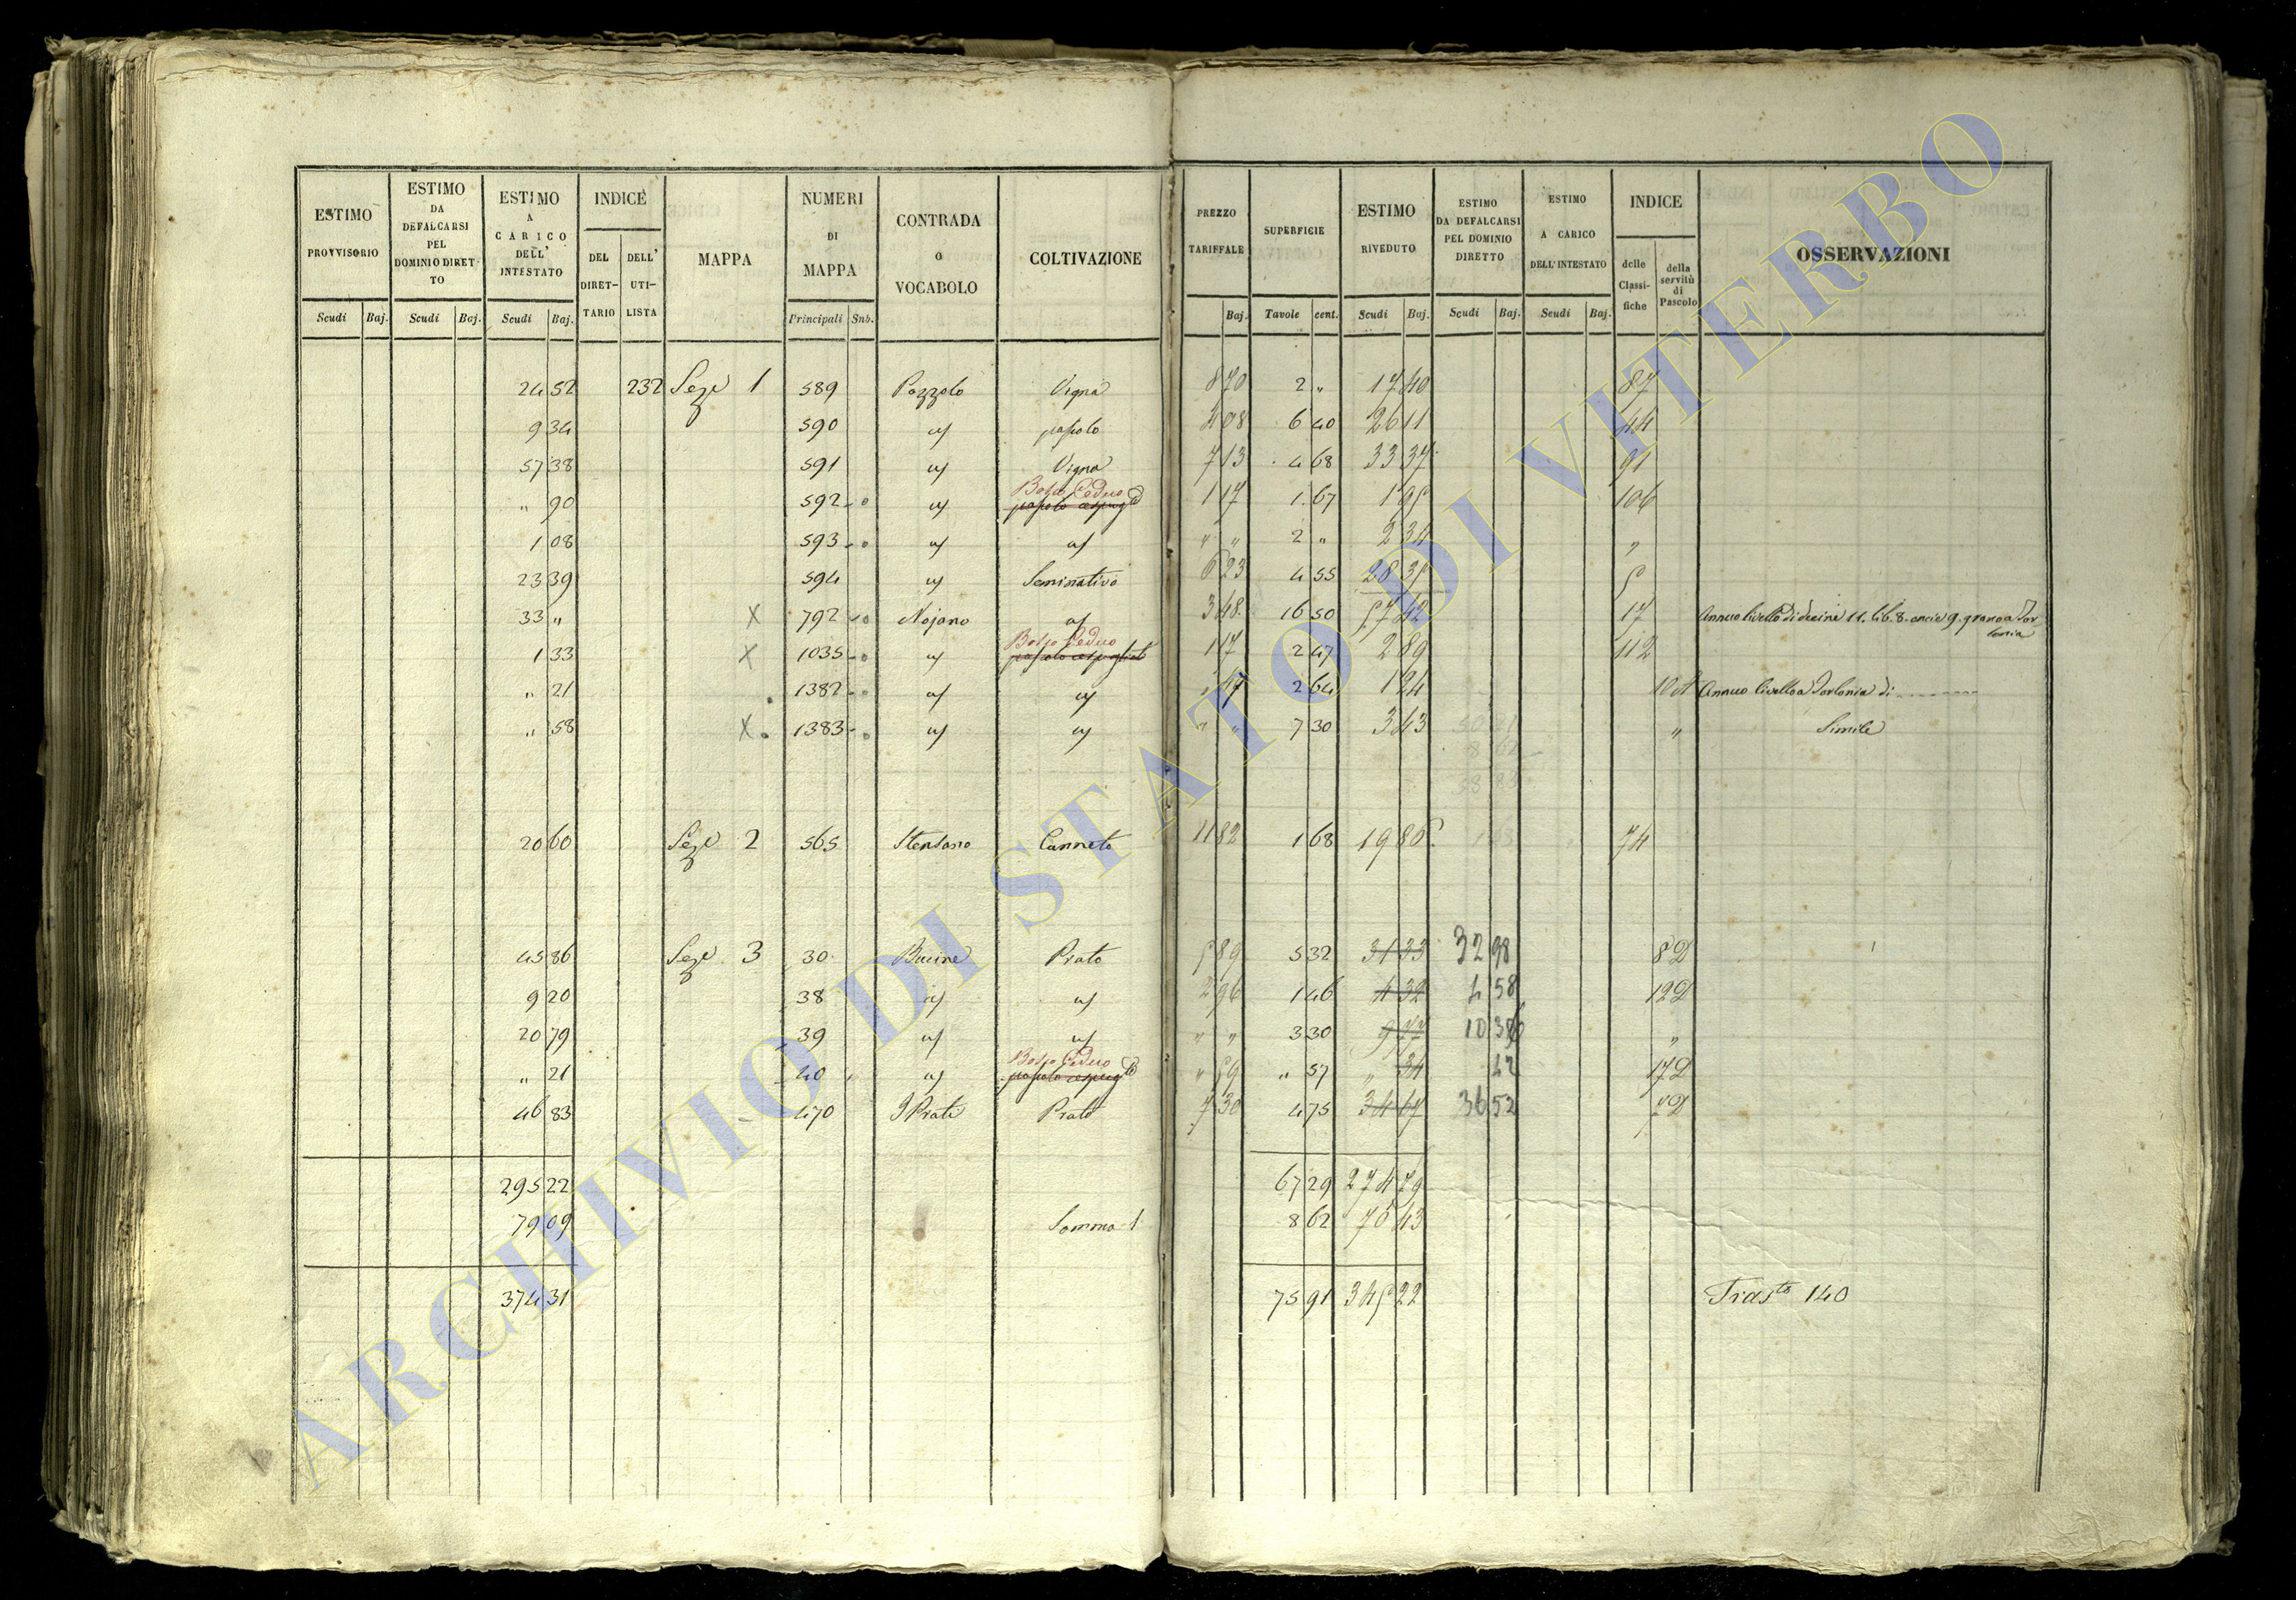 ESTIMO PROVVISORIO | ESTIMO DA DEFALCARSI PEL DOMINIO DIRETTO | ESTIMO A CARICO DELL' INTESTATO | INDICE | MAPPA | NUMERI DI MAPPA | CONTRADA O VOCABOLO | COLTIVAZIONE | PREZZO TARIFFALE | SUPERFICIE | ESTIMO RIVEDUTO | ESTIMO DA DEFALCARSI PEL DOMINIO DIRETTO | ESTIMO A CARICO DELL' INTESTATO | INDICE | OSSERVAZIONI
DEL DIRETTARIO | DELL' UTILISTA | delle Classifiche | della servitù di Pascolo
Scudi | Baj. | Scudi | Baj. | Scudi | Baj. | Principali | Sub. | Baj. | Tavole | cent. | Scudi | Baj. | Scudi | Baj. | Scudi | Baj.
24 52 | 232 | Seze 1 | 589 | Pozzolo | Vigna | 8 70 | 2 „ | 17 40 | 87
9 34 | 590 | pascolo | 4 08 | 6 40 | 26 11 | 44
57 38 | 591 | Vigna | 7 13 | 4 68 | 33 37 | 91
„ 90 | 592 | Bosco Ceduo | 1 17 | 1 67 | 1 95 | 106
1 08 | 593 | „ „ | 2 „ | 2 34 | „
23 39 | 594 | Seminativo | 6 23 | 4 55 | 28 35 | 5
33 „ | X | 792 | Nojano | 3 48 | 16 50 | 57 42 | 17 | Annuo livello di decine 11. lib. 8. oncie 9. grano a Torlonia
1 33 | X | 1035 | Bosco Ceduo | 1 17 | 2 47 | 2 89 | 112
„ 21 | 1382 | „ 47 | 2 64 | 1 24 | Annuo livello a Torlonia di
„ 58 | X | 1383 | „ „ | 7 30 | 3 43 | „ | Simile
20 60 | Seze 2 | 565 | Canneto | 11 82 | 1 68 | 19 86 | 74
45 86 | Seze 3 | 30 | Bucine | Prato | 5 89 | 5 32 | 31 33 | 32 98 | 8D
9 20 | 38 | 2 96 | 1 46 | 4 32 | 4 58 | 12D
20 79 | 39 | „ „ | 3 30 | 9 77 | 10 36 | „
„ 21 | 40 | Bosco Ceduo | „ 59 | „ 57 | „ 34 | 17D
46 83 | 470 | I Prati | Prato | 7 30 | 4 75 | 34 67 | 36 52 | 7D
295 22 | 67 29 | 274 79
79 09 | Somma 1 | 8 62 | 70 43
374 31 | 75 91 | 345 22 | Trasto 140
ARCHIVIO DI STATO DI VITERBO